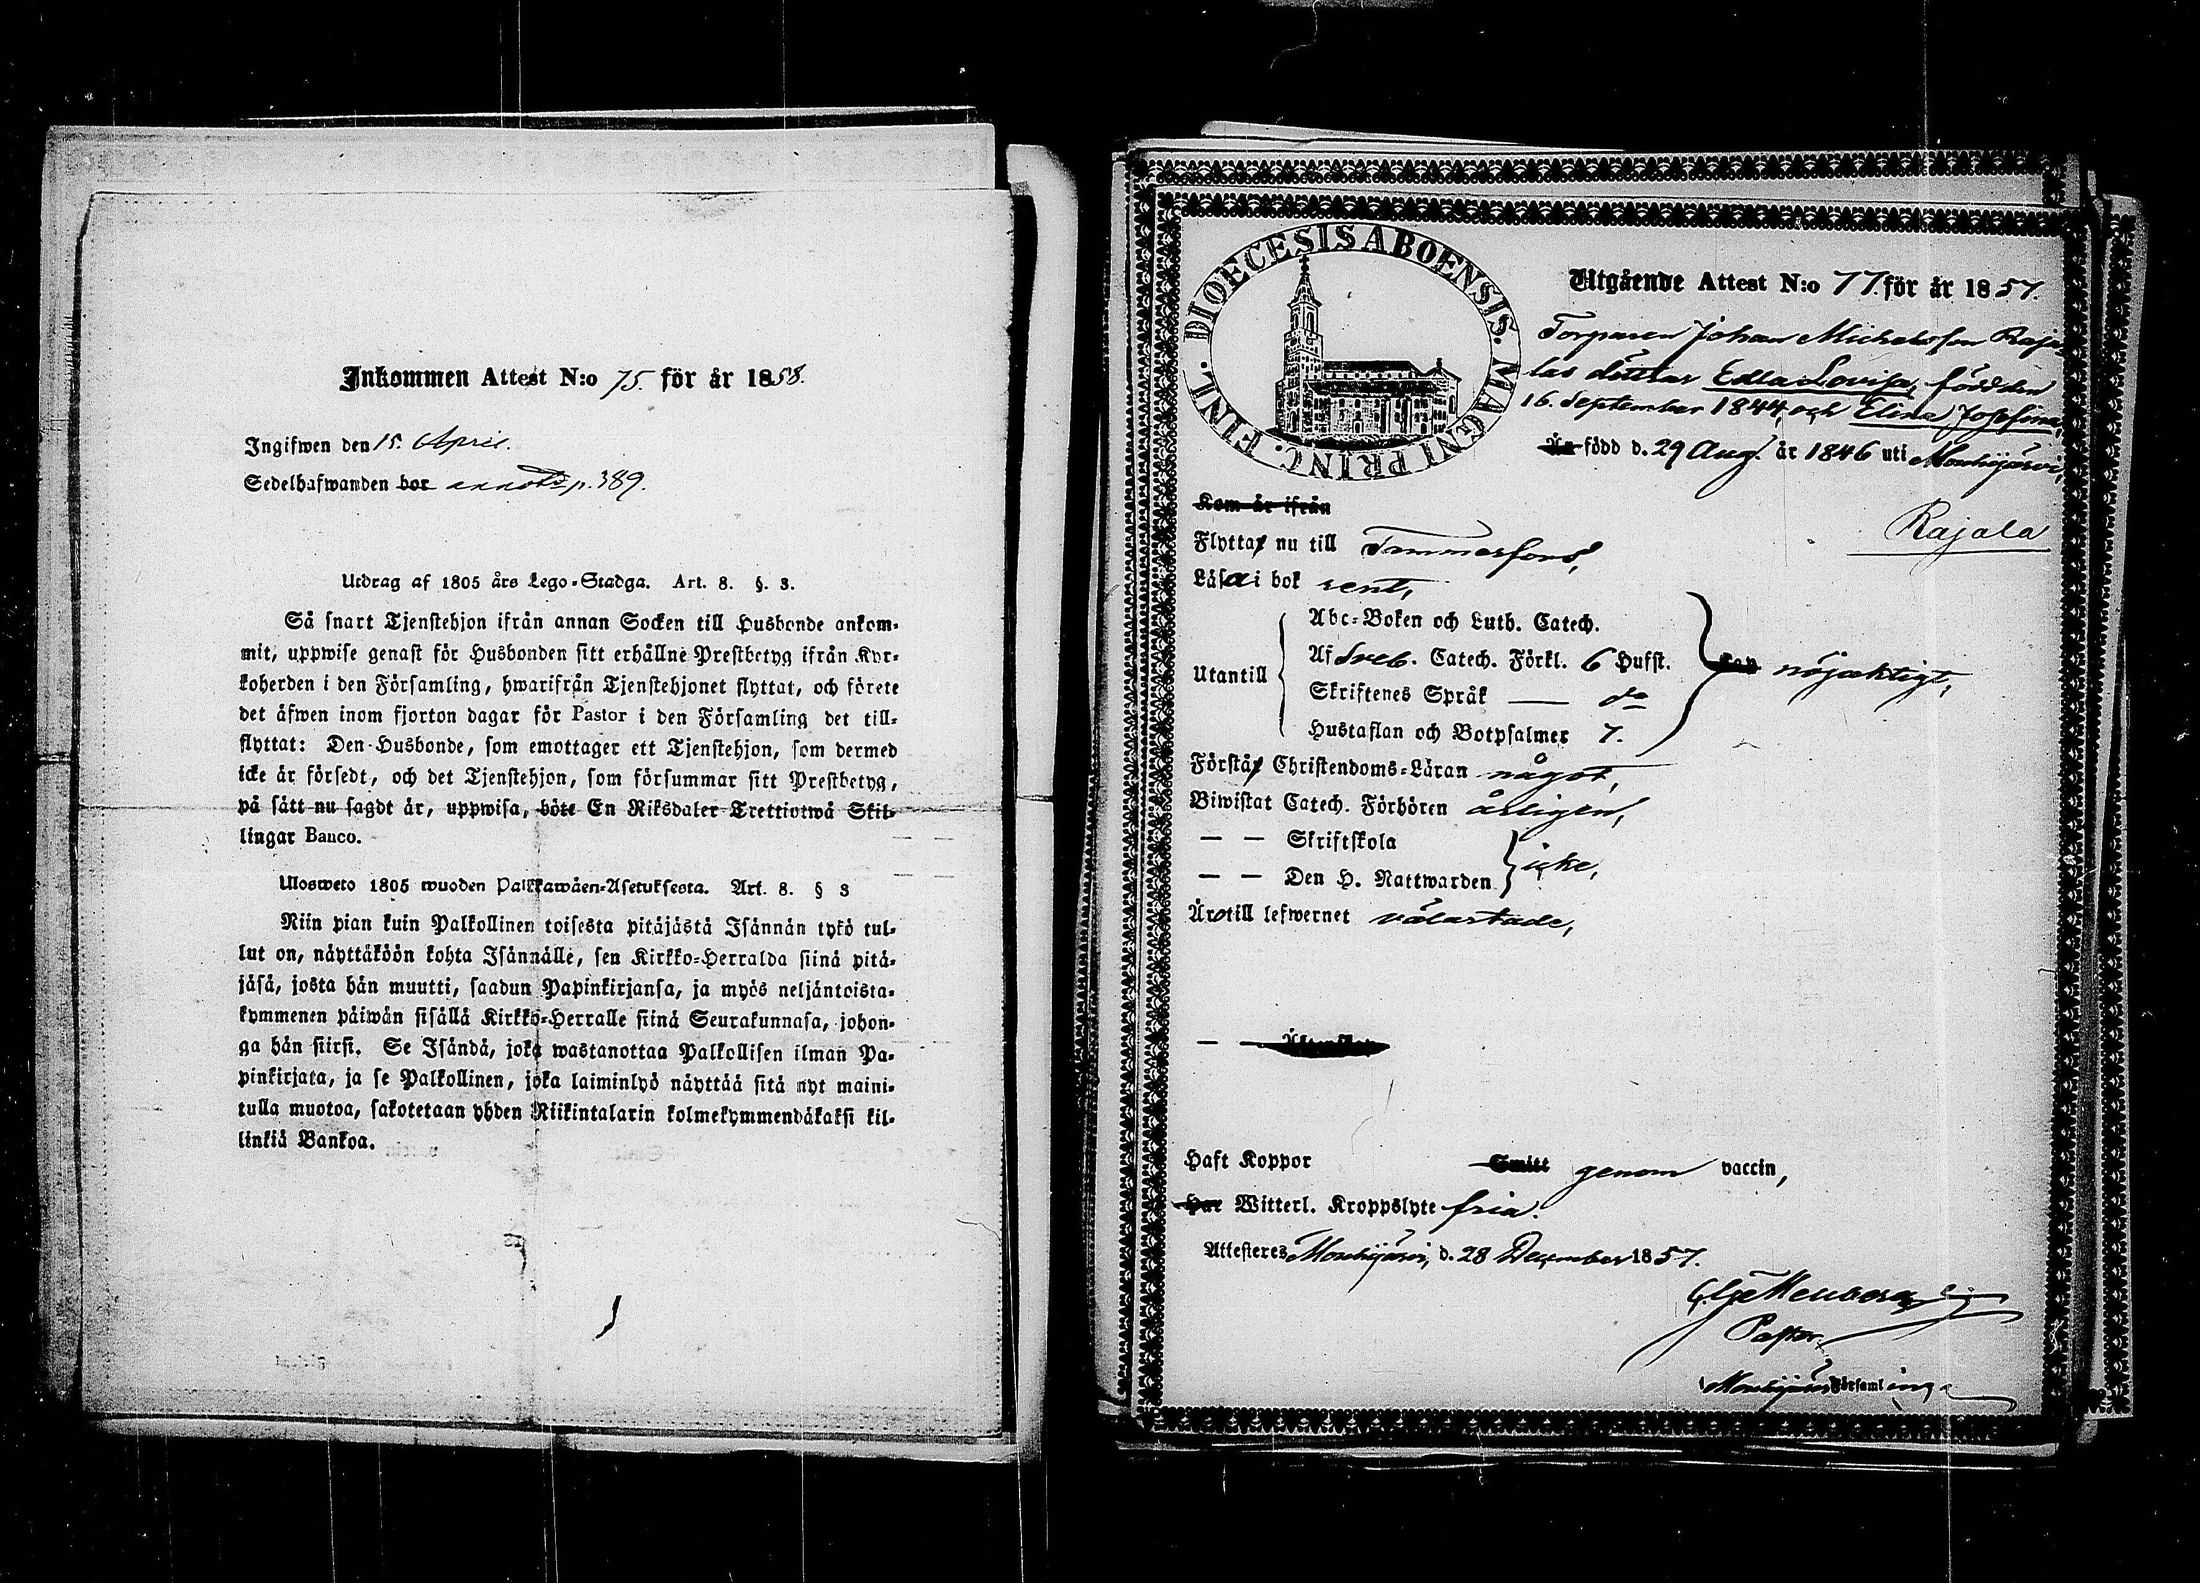 Inkommen Attest N:o 75. för år 1858.
Ingifwen den 15. April.
Sedelhafwanden bor annot. p. 389.
Utdrag af 1805 års Lego-Stadga. Art. 8. §. 3.
Så snart Tjenstehjon ifrån annan Socken till Husbonde ankom-
mit, uppwise genast för Husbonden sitt erhållne Prestbetyg ifrån Kyr-
koherden i den Församling, hwarifrån Tjenstehjonet flyttat, och förete
det äfwen inom fjorton dagar för Pastor i den Församling det till-
flyttat: Den Husbonde, som emottager ett Tjenstehjon, som dermed
icke är försedt, och det Tjenstehjon, som försummar sitt Prestbetyg,
på sätt nu sagdt är, uppwisa, böte En Riksdaler Trettiotwå Skil-
lingar Banco.
Ulosweto 1805 wuoden Palkkawäen-Asetuksesta. Art. 8. § 3
Niin pian kuin Palkollinen toisesta pitäjästä Isännän tykö tul-
lut on, näyttäköön kohta Isännälle, sen Kirkko-Herralda siinä pitä-
jäsä, josta hän muutti, saadun Papinkirjansa, ja myös neljäntoista-
kymmenen päiwän sisällä Kirkko-Herralle siinä Seurakunnasa, johon-
ga hän siirsi. Se Isändä, joka wastanottaa Palkollisen ilman Pa-
pinkirjata, ja se Palkollinen, joka laiminlyö näyttää sitä nyt maini-
tulla muotoa, sakotetaan yhden Riikintalarin kolmekymmendäkaksi kil-
linkiä Bankoa.
DIOECESIS ABOENSIS. MAGNI PRINC. FINL.
Utgående Attest N:o 77. för år 1857.
Torparen Johan Michelsson Raja-
las döttrar Edla Lovisa, född den
16. September 1844, och Elina Josefina,
Är född d. 29 Aug. år 1846 uti Mouhijärvi,
Rajala
Kom år ifrån
Flyttar nu till Tammerfors,
Läsa i bok rent,
Utantill
Abc-Boken och Luth. Catech.
Af Sveb. Catech. Förkl. 6 Hufst.
Skriftenes Språk — do
Hustaflan och Botpsalmer 7.
nöjaktigt,
Förstår Christendoms-Läran något,
Biwistat Catech. Förhören årligen,
— — Skriftskola
— — Den H. Nattwarden
icke,
Äro till lefwernet välartade,
Haft Koppor Smitt genom vaccin,
Har Witterl. Kroppslyte fria.
Attesteres Mouhijärvi, d. 28 December 1857.
Pastor
Mouhijärvi Församling